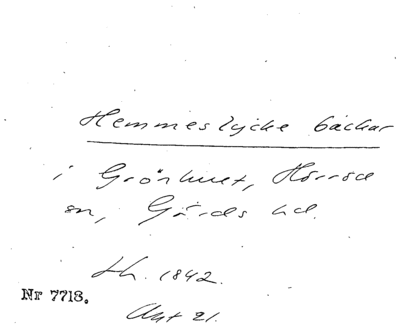 Hemmeslycke bäckar
i Grönhult, Hörröd
sn, Gärds hd.
Lh. 1842.
Nr 7718.
Akt 21.